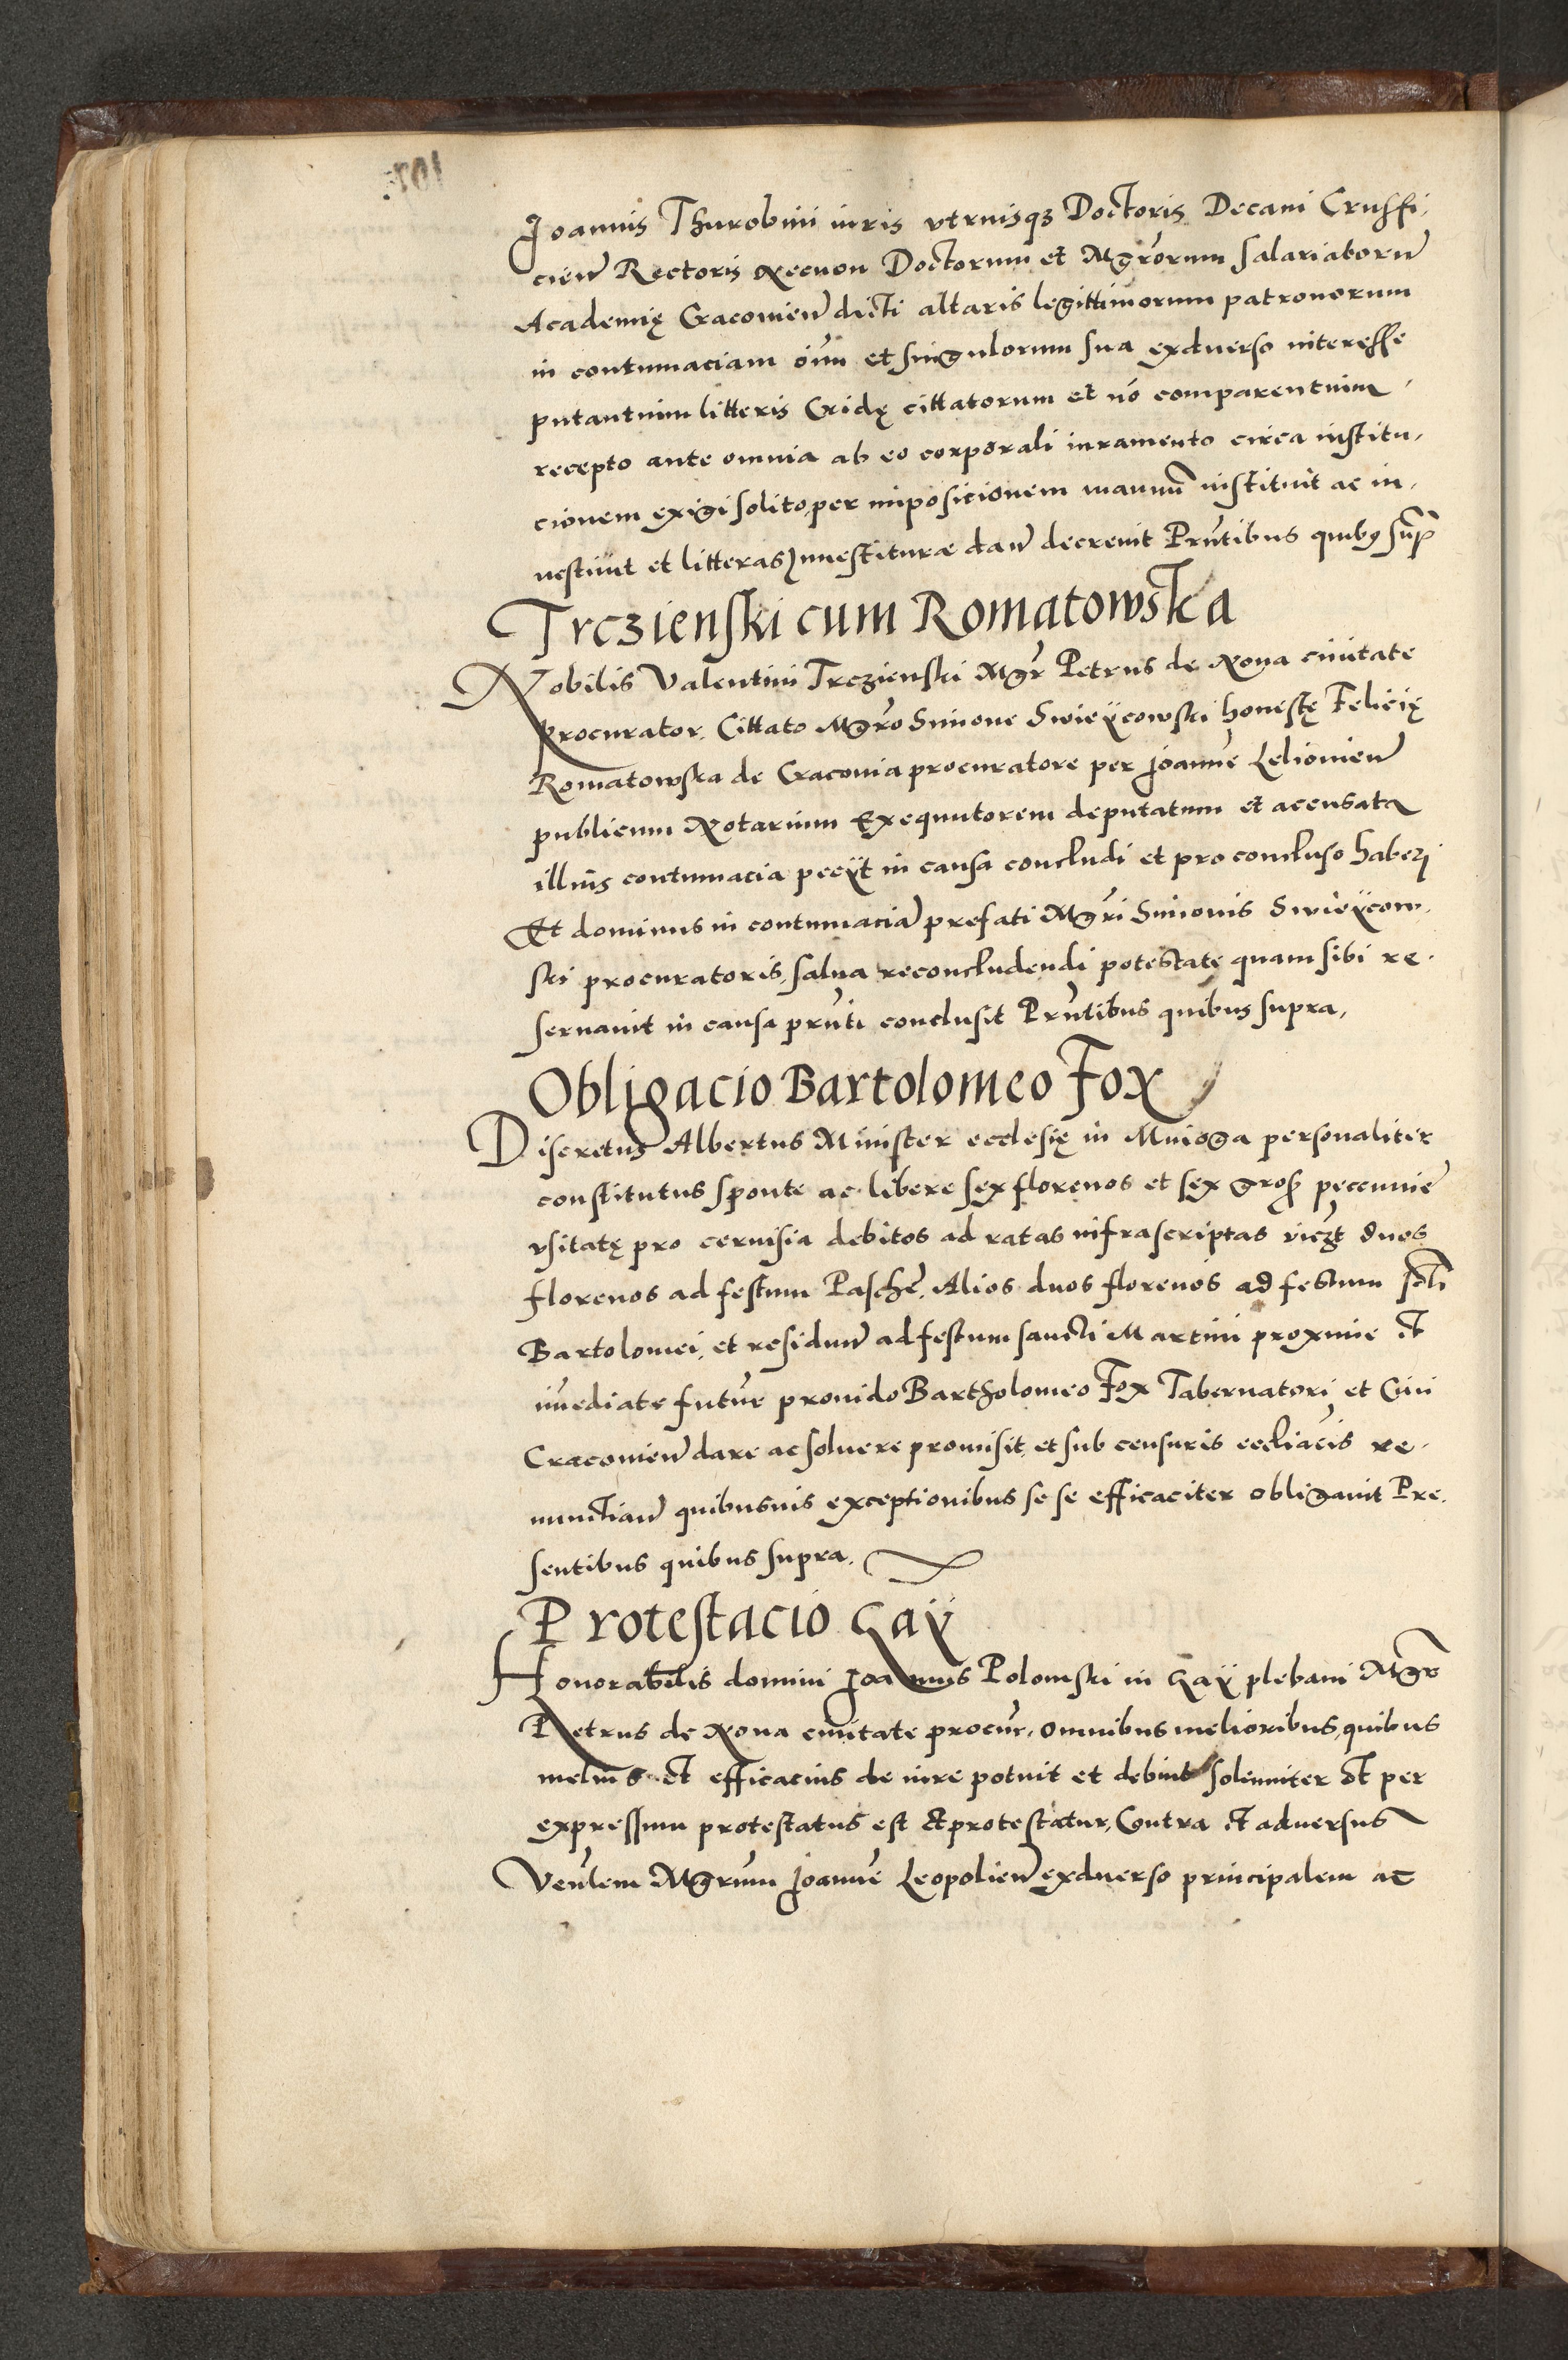 Joannis Thurobini iuris vtriusq3 Doctoris Decani Crussfi,
cien̄ Rectoris Necnon Doctorum et Mgrōrum salariatorū
Academię Cracouien̄ dicti altaris legittimorum patronorum
in contumaciam oīum et singulorum sua exaduerso interesse
putantium litteris Cridę cittatorum et nō comparentium,
recepto ante omnia ab eo corporali iuramento circa institu,
cionem exigi solito, per imposicionem manuū instituit ac in,
uestiuit et litteras Inuestiturae dan̄ decreuit Prn̄tibus quibꝫ supͣ
Trczienski cum Romatowska
Nobilis Valentini Trczienski Mgr̄ Petrus de Noua ciuitate
procurator. Cittato Mgrō Simone Swieÿcowski honestę Felicię
Romatowska de Cracouia procuratore per Joannē Lelouien̄
publicum Notarium Exequutorem deputatum et accusata
illius contumacia pecÿt in causa concludi et pro concluso haberi
Et dominus in contumaciā prefati Mgrī Simonis Swieÿcow,
ski procuratoris, salua reconcludendi potestate quam sibi re,
seruauit in causa prn̄ti conclusit Prn̄tibus quibus supra,
Obligacio Bartolomeo Fox
Discretus Albertus Minister ecclesię in Mnioga personaliter
constitutus sponte ac libere sex florenos et sex groß peccunie
vsitatę pro ceruisia debitos ad ratas infrascriptas viczt duos
florenos ad festum Paschē, Alios duos florenos ad festum sctī
Bartolomei, et residuū ad festum sancti Martini proxime et
im̄ediate futur̄ prouido Bartholomeo Fox Tabernatori et Ciui
Cracouien̄ dare ac soluere promisit, et sub censuris eccliācis re,
nunctian̄ quibusuis exceptionibus se se efficaciter obligauit Pre,
sentibus quibus supra.
Protestacio Gaÿ
Honorabilis domini Joannis Polomski in Gaÿ plebani Mgr̄
Petrus de Noua ciuitate procur̄. omnibus melioribus, quibus
melius et efficacius de iure potuit et debuit solenniter et per
expressum protestatus est et protestatur, Contra et aduersus
Venlem Mgrum Joannē Leopolien̄ exaduerso principalem ac